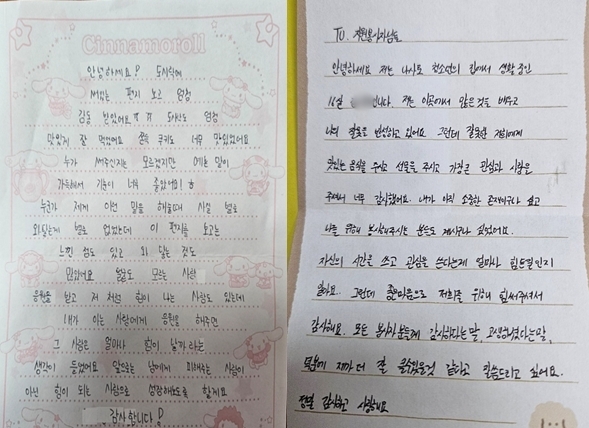 Cinnamoroll
안녕하세요! 도시락에
써있는 편지 보고 엄청
감동 받았어요 ㅠㅠ 도시락도 엄청
맛있게 잘 먹었어요 쿠키도 너무 맛있었어요
누가 써주신지는 모르겠지만 예쁜 말이
가득해서 기분이 너무 좋았어요! ㅎ
누군가 제게 이런 말을 해줄때 사실 별로
와닿는게 별로 없었는데 이 편지를 보고는
느낀 점도 있고 와 닿는 것도
많았어요 얼굴도 모르는 사람
응원을 받고 저 처럼 힘이 나는 사람도 있는데
내가 아는 사람에게 응원을 해주면
그 사람은 얼마나 힘이 날까 라는
생각이 들었어요 앞으로는 남에게 피해주는 사람이
아닌 힘이 되는 사람으로 성장해보도록 할게요
감사합니다!
TO. 자원봉사자님들
안녕하세요 저는 나사로 청소년의 집에서 생활 중인
16살 입니다. 저는 이곳에서 많은것을 배우고
나의 잘못을 반성하고 있어요. 그런데 잘못한 저희에게
맛있는 음식을 주시고 선물을 주시고 가장 큰 관심과 사랑은
주셔서 너무 감사했어요. 내가 아직 소중한 존재이구나 싶고
나를 위해 봉사해주시는 분들도 계시구나 싶었어요.
자신의 시간을 쓰고 관심을 쓴다는게 얼마나 힘든일인지
알아요.. 그런데 좋은마음으로 저희를 위해 힘써주셔서
감사해요. 모든 봉사자분들께 감사하다는 말, 고생하셨다는 말,
덕분에 제가 더 잘 클수있을것 같다고 말씀드리고 싶어요.
정말 감사하고 사랑해요